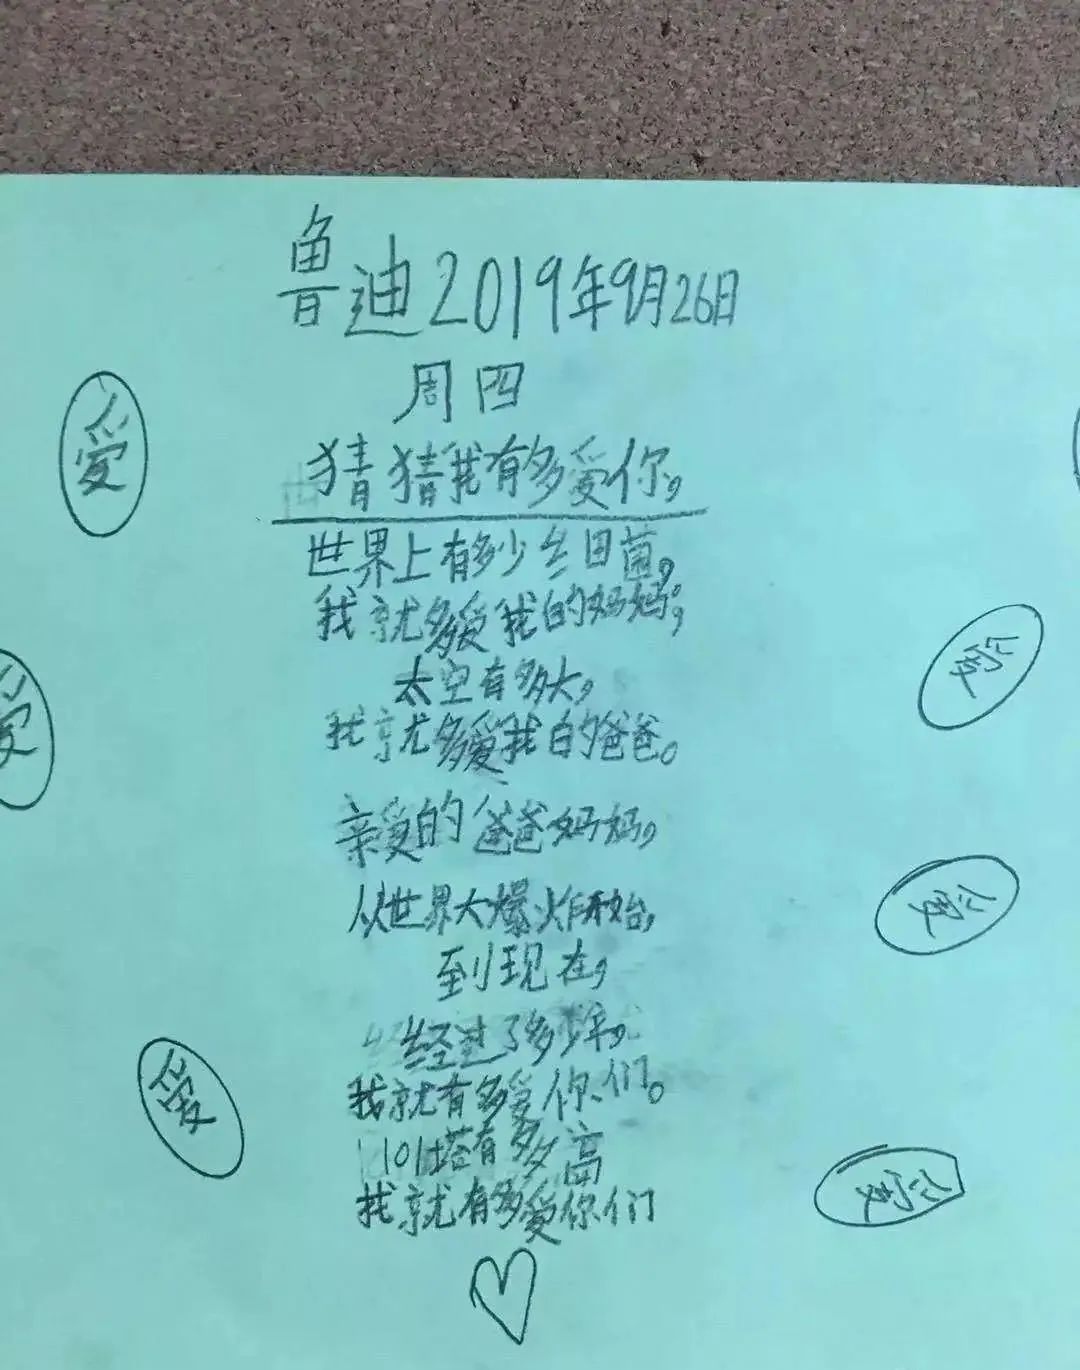 鲁迪2019年9月26日
周四
猜猜我有多爱你,
世界上有多少丝田菌,
我就多爱我的妈妈;
太空有多大,
我就多爱我的爸爸。
亲爱的爸爸妈妈,
从世界大爆炸开始,
到现在,
经过了多少年,
我就有多爱你们。
101塔有多高
我就有多爱你们
爱
爱
爱
爱
爱
爱